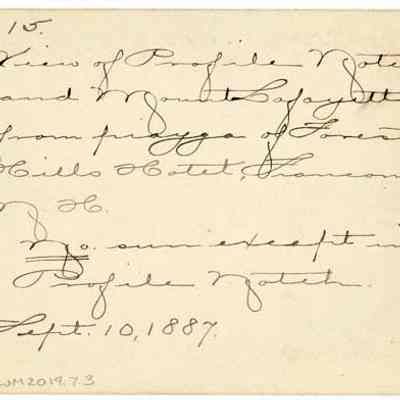 15.
View of Profile Notc
and Mount Lafayett
from piazza of Fores
Hills Hotel, Francon
N. H.
No. sun except in
Profile Notch.
Sept. 10, 1887.
WM2019.7.3